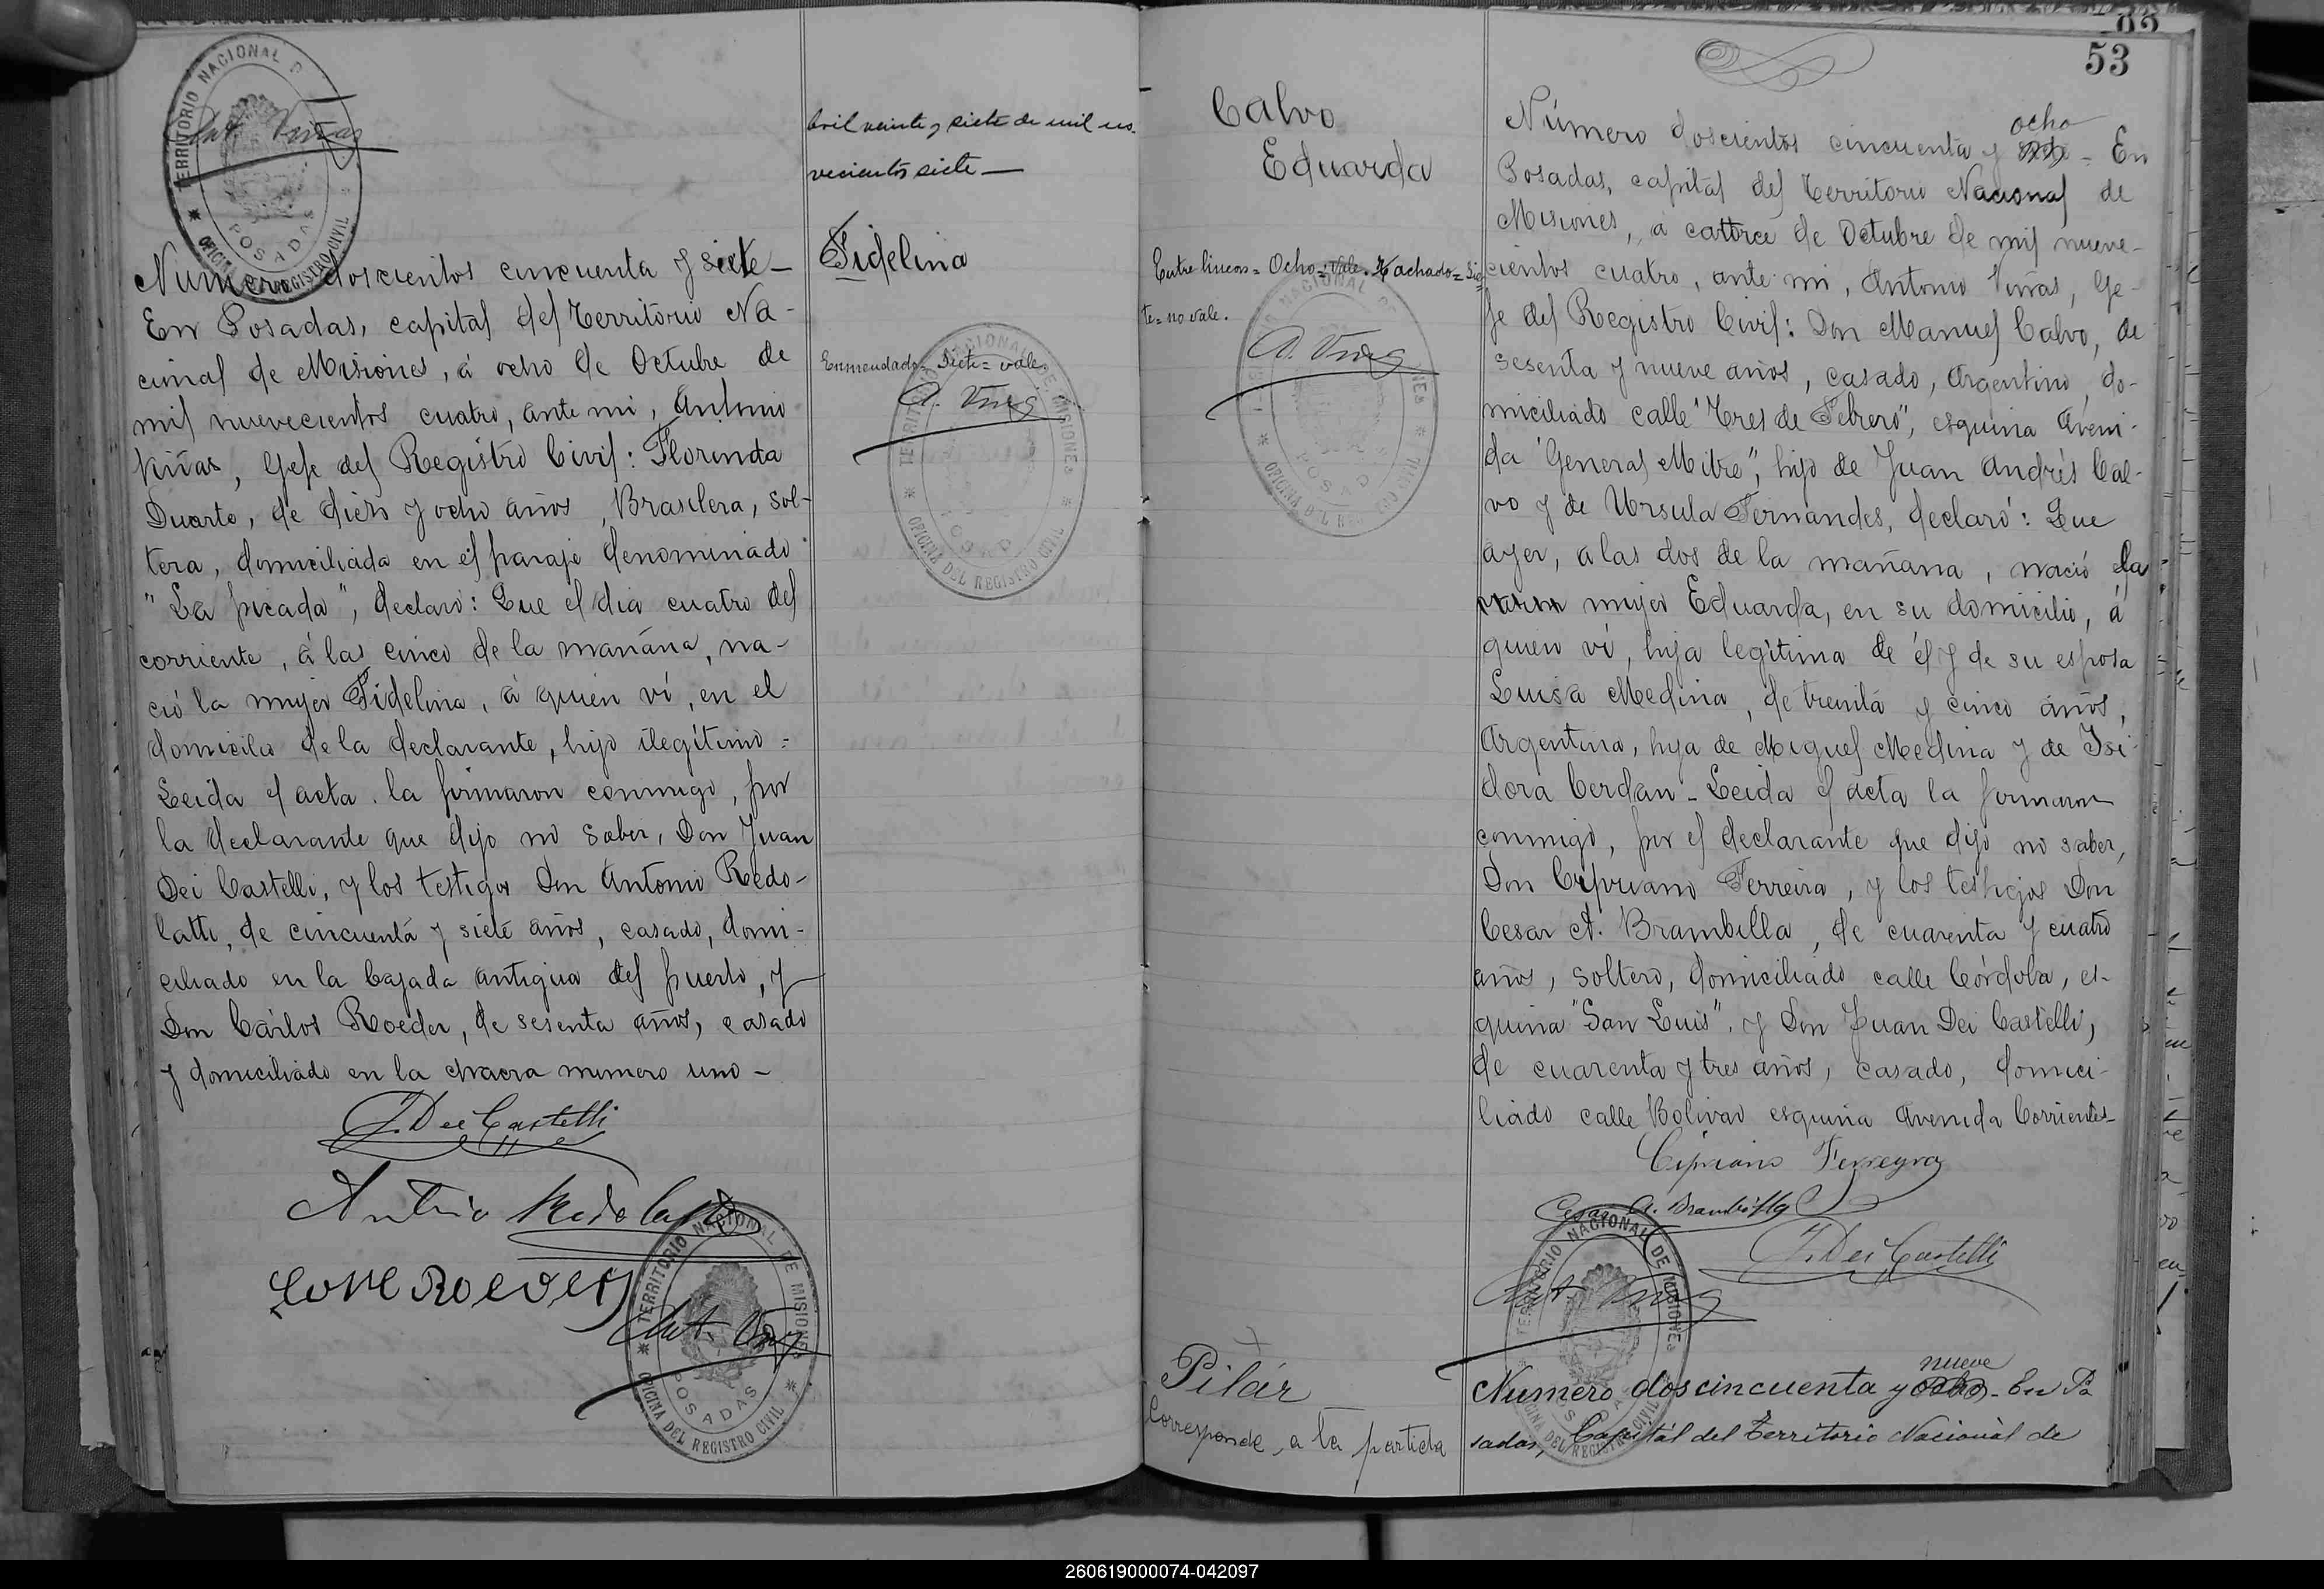 TERRITORIO NACIONAL D
OFICINA DEL REGISTRO CIVIL
POSADAS
Ant. Viñas
bril veinte y siete de mil no-
vecientos siete —
Número doscientos cincuenta y siete —
En Posadas, capital del Territorio Na-
cional de Misiones, á ocho de Octubre de
mil nuevecientos cuatro, ante mi, Antonio
Viñas, Gefe del Registro Civil: Florinda
Duarte, de diez y ocho años, Brasilera, sol-
tera, domiciliada en el paraje denominado
"La picada", declaró: Que el dia cuatro del
corriente, á las cinco de la mañana, na-
ció la mujer Fidelina, á quien ví, en el
domicilio de la declarante, hijo ilegítimo =
Leida el acta la firmaron conmigo, por
la declarante que dijo no saber, Don Juan
Dei Castelli, y los testigos Don Antonio Redo-
latti, de cincuenta y siete años, casado, domi-
ciliado en la bajada antigua del puerto, y
Don Cárlos Roeder, de sesenta años, casado
y domiciliado en la chacra numero uno —
J. Dei Castelli
Antonio Redolatti
Roeder
Ant. Viñas
TERRITORIO NACIONAL DE MISIONES
OFICINA DEL REGISTRO CIVIL
POSADAS
Fidelina
Enmendado = Siete = vale
A. Viñas
TERRITORIO NACIONAL DE MISIONES
OFICINA DEL REGISTRO CIVIL
POSADAS
53
Calvo
Eduarda
Entre lineas = Ocho = vale. Tachado = Sie-
te = no vale.
A. Viñas
NACIONAL DE MISIONES
OFICINA DEL REGISTRO CIVIL
POSADAS
ocho
Número doscientos cincuenta y siete = En
Posadas, capital del Territorio Nacional de
Misiones, á catorce de Octubre de mil nueve-
cientos cuatro, ante mi, Antonio Viñas, Ge-
fe del Registro Civil: Don Manuel Calvo, de
sesenta y nueve años, casado, Argentino, do-
miciliado calle "Tres de Febrero", esquina Aveni-
da "General Mitre", hijo de Juan Andrés Cal-
vo y de Ursula Fernandes, declaró: Que
ayer, a las dos de la mañana, nació la
mujer Eduarda, en su domicilio, á
quien ví, hija legítima de él y de su esposa
Luisa Medina, de treinta y cinco años,
Argentina, hija de Miguel Medina y de Isi-
dora Cerdan - Leida el acta la firmaron
conmigo, por el declarante que dijo no saber,
Don Cipriano Ferreira, y los testigos Don
Cesar A. Brambilla, de cuarenta y cuatro
años, soltero, domiciliado calle Córdoba, es-
quina "San Luis", y Don Juan Dei Castelli,
de cuarenta y tres años, casado, domici-
liado calle Bolivar esquina Avenida Corrientes -
Cipriano Ferreyra
Cesar A. Brambilla
J. Dei Castelli
Ant. Viñas
TERRITORIO NACIONAL DE MISIONES
OFICINA DEL REGISTRO CIVIL
Pilár
Corresponde, a la partida
nueve
Numero doscincuenta y ocho - En Po
sadas, Capitál del Territorio Nacionàl de
260619000074-042097